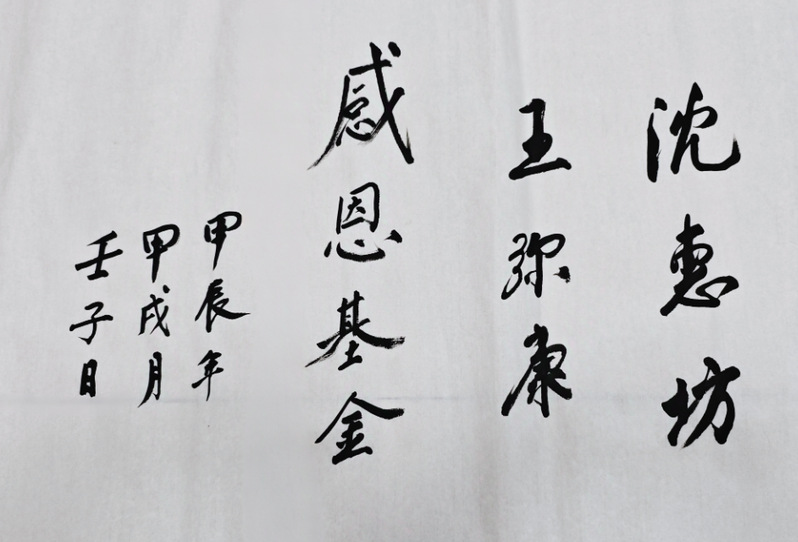 沈惠坊
王弥康
感恩基金
甲辰年
甲戌月
壬子日